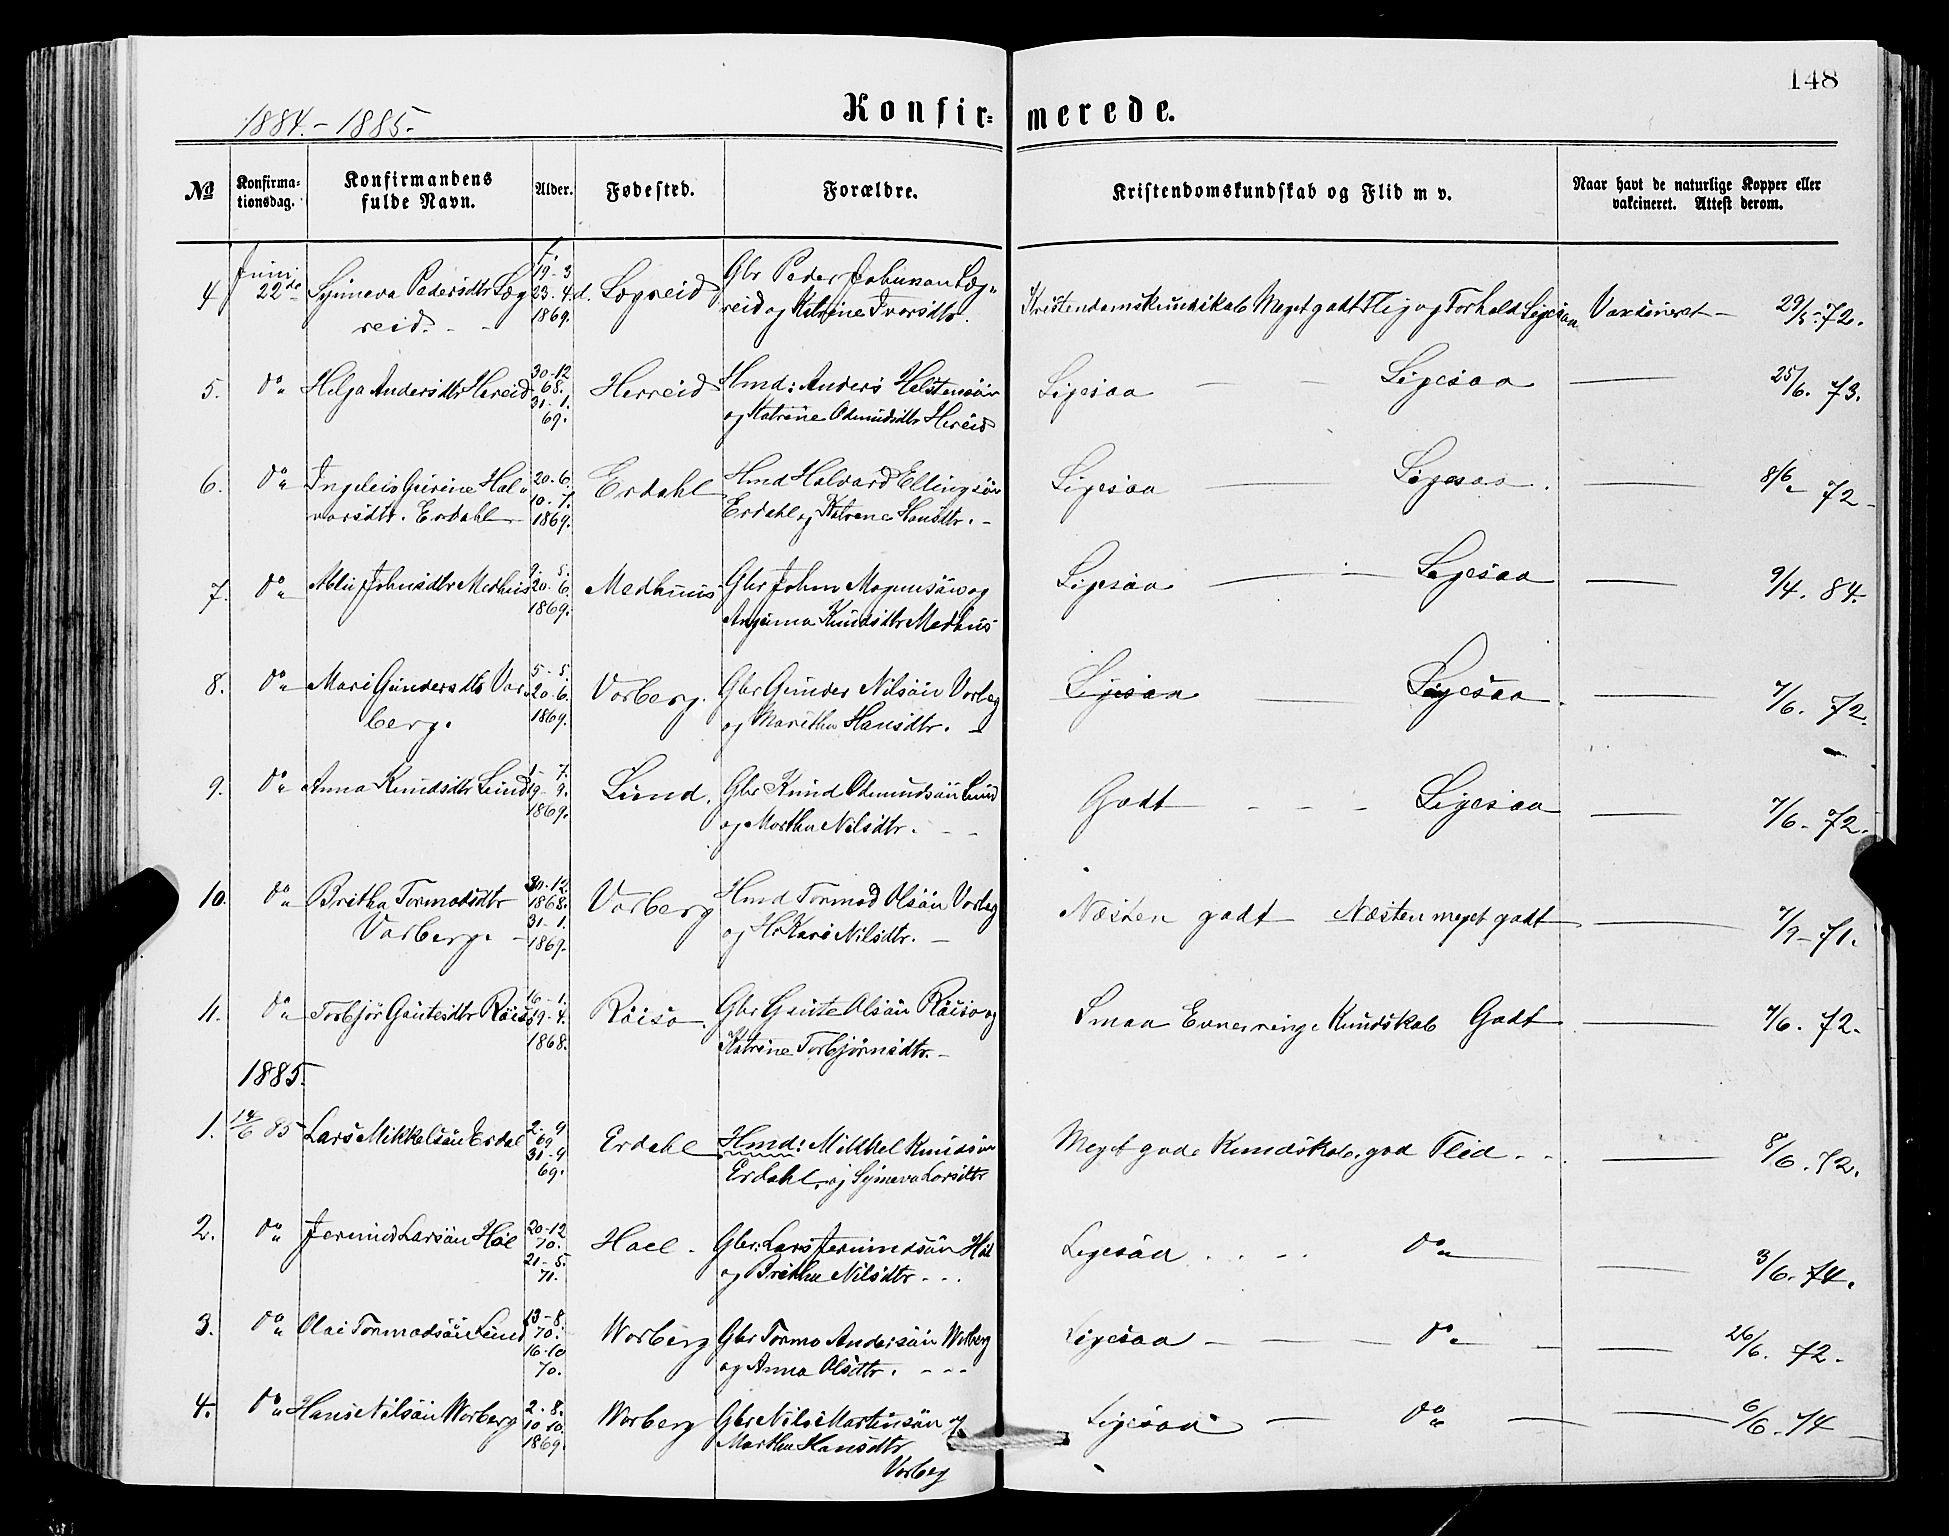 148
1884.-1885.
Konfir=merede.
No
Konfirma=
tionsdag.
Konfirmandens
fulde Navn.
Alder.
Fødested.
Forældre.
Kristendomskundskab og Flid m v.
Naar havt de naturlige Kopper eller
vakcineret. Attest derom.
Juni
4 22de Synneva Pedersdtr Læg
reid.
f.
19-3
23.4.d.
1869.
Lægreid
Gbr Peder Johnson Læg=
reid og Katrine Iversdtr.
Kristendomskundskab Meget godt Flig og Forhold Ligesaa Vaxsineret - 29/5-72.
5. do Helga Andersdtr Hereid
30-12
68.
31-1.
69.
Herreid
Hmd: Anders Helstensøn
og Katrine Odmundsdtr Hereid
Ligesaa - - Ligesaa - 25/6. 73.
6. do Ingeleis Geirine Hal=
vorsdtr. Erdahl
20-6.
10-7.
1869.
Erdahl
Hmd Halvard Ellingsøn
Erdahl og Katrene Hansdtr. -
Ligesaa - Ligesaa. - 8/6 72-
7. do Johnsdtr Medhus
9-5.
20-6.
1869.
Medhuus
Gbr John Magnusøn og
Angunna Knudsdtr Medhus
Ligesaa - - Ligesaa - 9/4. 84.
8. do Mari Gundersdtr Vor=
berg.
5-5.
20-6.
1869.
Vorberg.
Gbr Gunder Nilsøn Vorberg
og Maritha Hansdtr. -
Ligesaa - Ligesaa. - 7/6. 72.
9. do Anna Knudsdtr Lund
1-7.
19-9.
1869.
Lund.
Gbr Knud Odmundsøn Lund
og Martha Nilsdtr. - -
Godt - - - Ligesaa - 7/6-72.
10. do Britha Tormodsdtr
Vorberg. -
30-12
1868.
31-1.
1869.
Vorberg
Hmd Tormod Olsøn Vorberg
og H. Kari Nilsdtr. -
Næsten godt Næsten meget godt - 7/9-71.
11. do Torbjør Gautesdtr Røiso
16-1.
19-4.
1868.
Røiso
Gbr Gaute Olsøn Røiso og
Katrine Torbjørnsdtr. -
Smaa Evner ringe Kundskab Godt - 7/6. 72.
1885.
1. 14/6 85 Lars Mikkelsøn Erdal
2-9
69
31-9
69.
Erdahl
Hmd: Mikkel Knudsøn
Erdahl, og Synneva Larsdtr
Meget gode Kundskab. god Flid. - - 8/6. 72.
2. do Jermund Larsøn Hæl
20-12
70.
21-5.
71.
Hæel.
Gbr: Lars Jermundsøn Hæl
og Britha Nilsdtr - - -
Ligesaa . . - - do - - 3/6. 74.
3. do Olai Tormodsøn Lund
13-8.
70.
16-10
70.
Worberg
Gbr Tormo Andersøn Worberg
og Anna Olsdtr. - - -
Ligesaa - - do - - 26/6. 72.
4. do Hans Nilsøn Worberg
2-8.
10-10.
1869.
Worberg
Gbr Nils Martinsøn og
Martha Hansdtr
Vorberg
Ligesaa - do - - 6/6-74 -